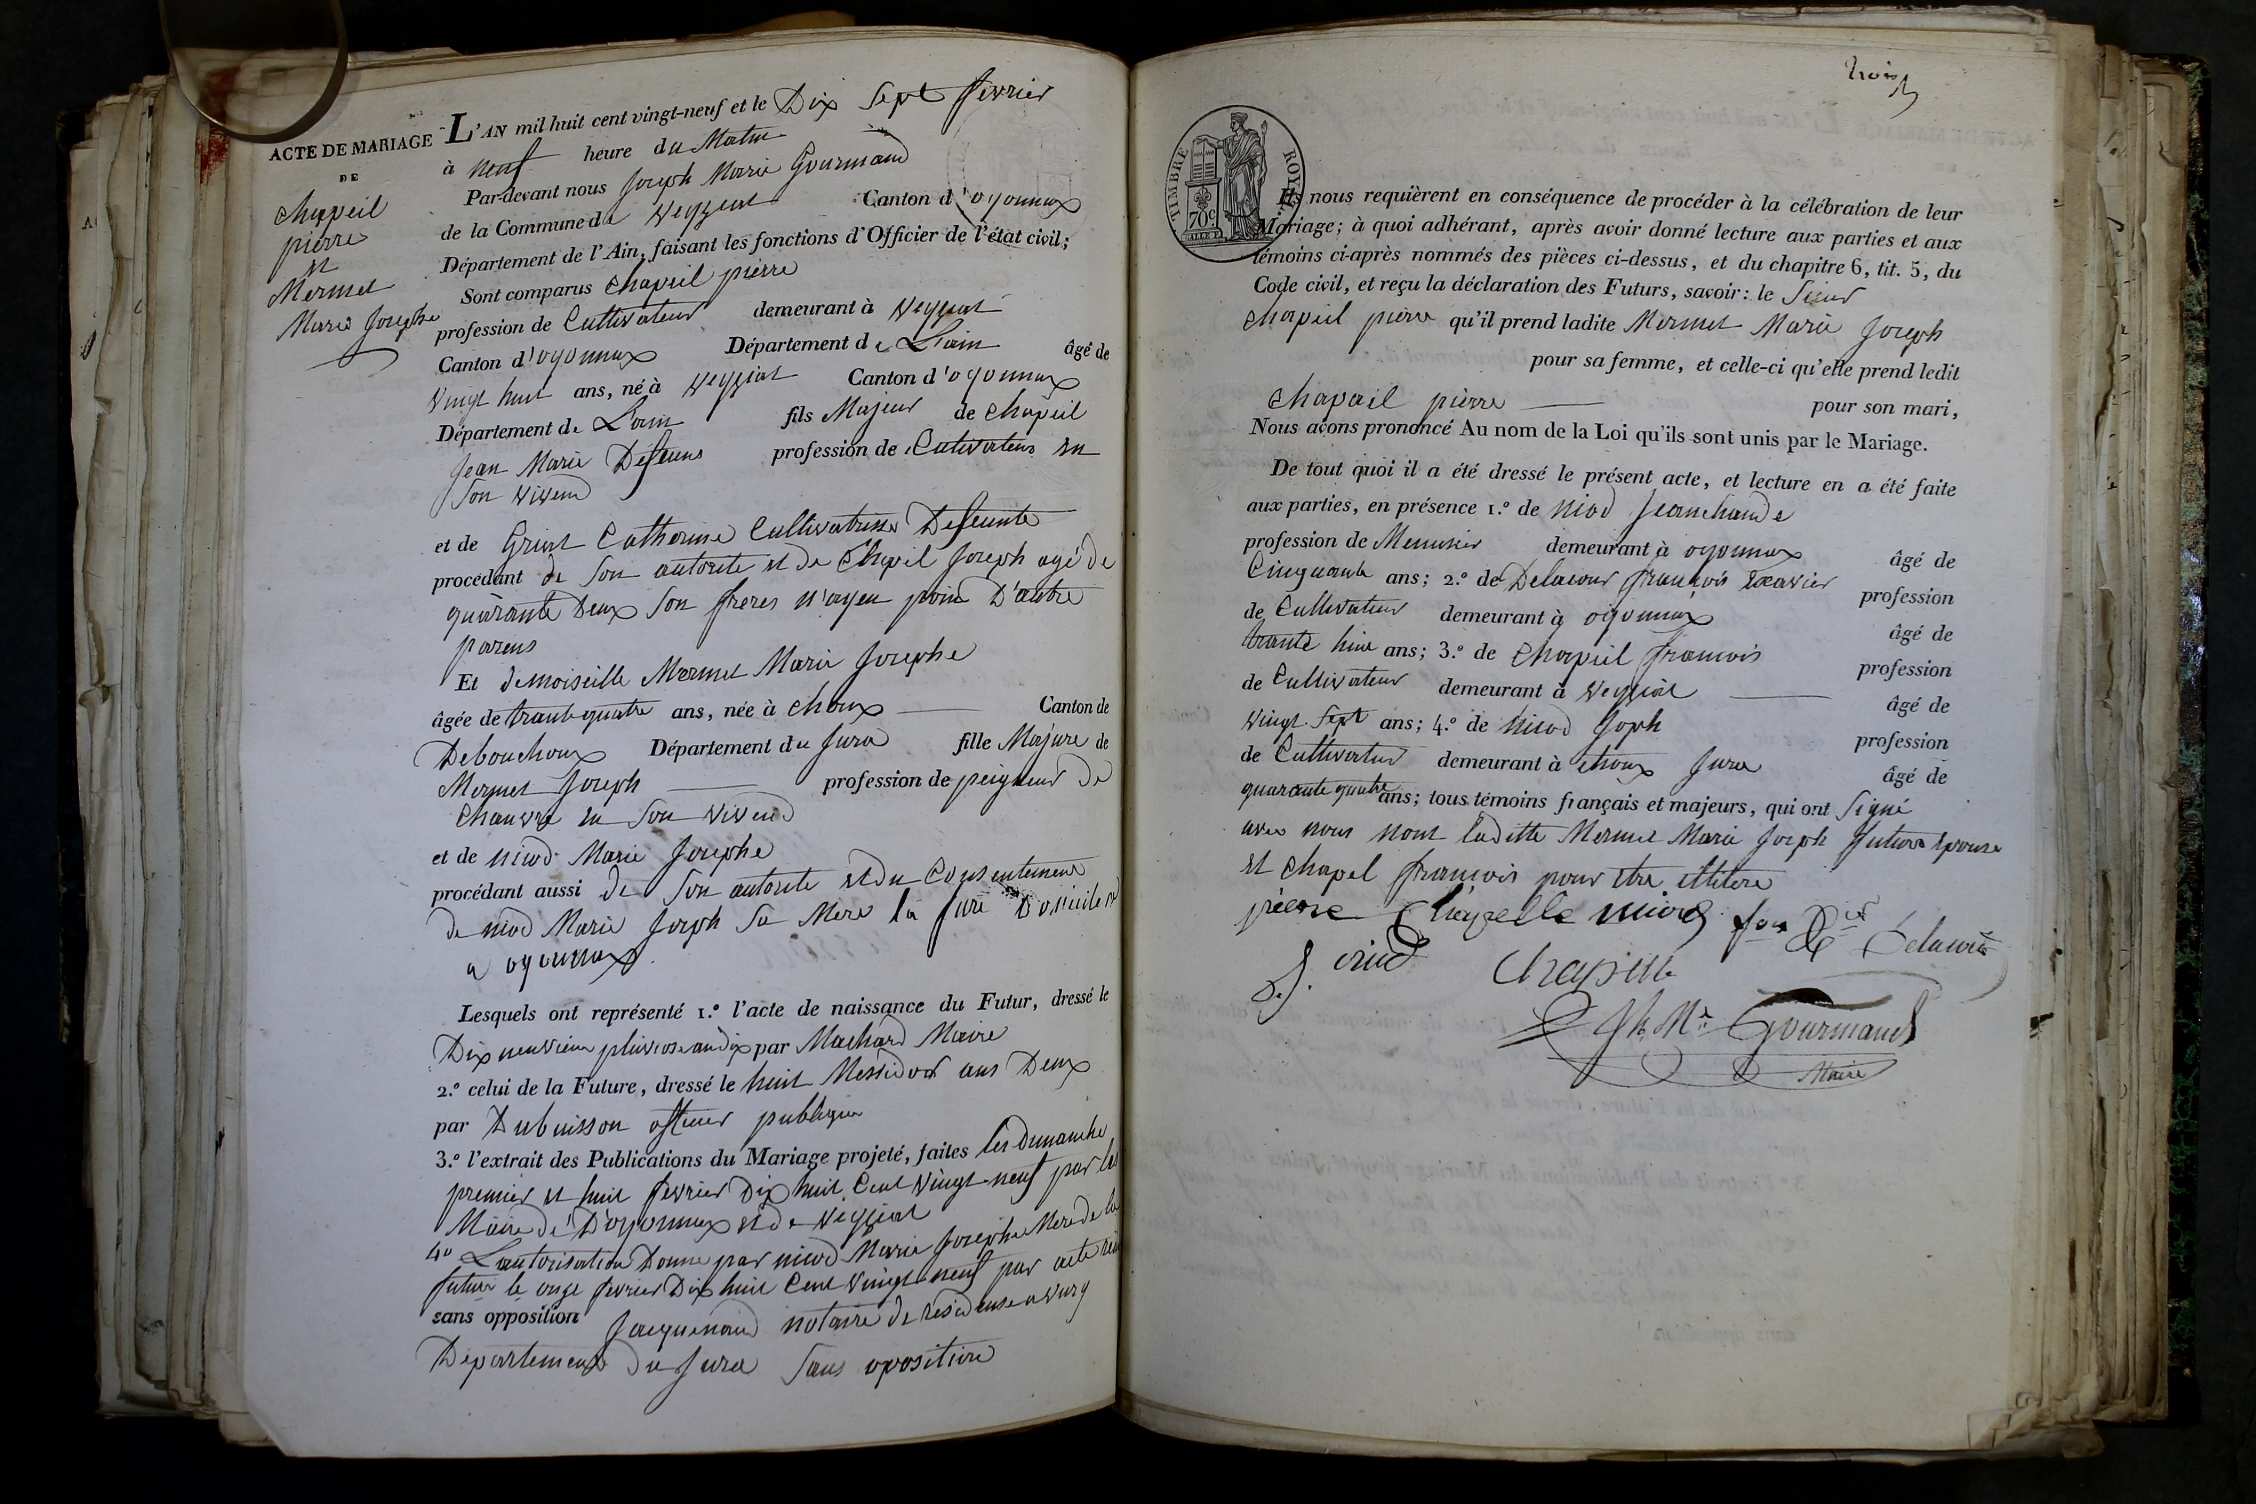 ACTE DE MARIAGE
DE
chapeil
pierre
et
Mermet
Marie Josephe
L'AN mil huit cent vingt-neuf et le Dix Sept fevrier
à neuf heure du Matin
Par-devant nous Joseph Marie Gourmand
de la Commune de Veyziat Canton d'oyonnax
Département de l'Ain, faisant les fonctions d'Officier de l'état civil;
Sont comparus chapeil pierre
profession de Cultivateur demeurant à Veyziat
Canton d'oyonnax Département de L'ain âgé de
Vingt huit ans, né à Veyziat Canton d'oyonnax
Département de L'ain fils Majeur de chapeil
Jean Marie Defeuns profession de Cutivateur en
Son viven
et de Grint Catherine Cultivatrise Defeunte
procédant de Son autorite et de Chapeil Joseph agé de
quarante Deux Son freres n'ayen poin D'autre
parens
Et demoiseille Mermet Marie Josephe
âgée de trante quatre ans, née à choux Canton de
Debouchoux Département du Jura fille Majure de
Mermet Joseph profession de peigneur de
Chanvre en Son viven
et de nicod Marie Josephe
procédant aussi de Son autorite et du Consentement
de nicod Marie Joseph Sa Mere
a oyonnax.
Lesquels ont représenté 1.º l'acte de naissance du Futur, dressé le
Dix neuvieme pluviose an dix par Machard Maire
2.º celui de la Future, dressé le huit Messidor ans Deux
par Dubuisson officier publique
3.º l'extrait des Publications du Mariage projeté, faites les Dimanche
premier et huit fevrier Dix huit Cent Vingt neuf par les
Maire de D'oyonnax et de Veyziat
4º Lautorisation Donne par nicod Marie Josephe Mere de la
future le onze fevrier Dix huit Cent Vingt neuf par acte
sans opposition Jacquenod notaire de residense a
Departement du Jura Sans oposition
trois
TIMBRE ROYAL
70c
Ils nous requièrent en conséquence de procéder à la célébration de leur
Mariage; à quoi adhérant, après avoir donné lecture aux parties et aux
témoins ci-après nommés des pièces ci-dessus, et du chapitre 6, tit. 5, du
Code civil, et reçu la déclaration des Futurs, savoir: le Sieur
chapeil pierre qu'il prend ladite Mermet Marie Joseph
pour sa femme, et celle-ci qu'elle prend ledit
chapeil pierre pour son mari,
Nous avons prononcé Au nom de la Loi qu'ils sont unis par le Mariage.
De tout quoi il a été dressé le présent acte, et lecture en a été faite
aux parties, en présence 1.º de nicod Jeanchaude
profession de Menusier demeurant à oyonnax âgé de
Cinquante ans; 2.º de Delacour françois profession
de Cultivateur demeurant à oyonnax âgé de
trante huit ans; 3.º de chapeil françois profession
de Cultivateur demeurant à Veyziat âgé de
Vingt Sept ans; 4.º de nicod Joseph profession
de Cultivateur demeurant à choux Jura âgé de
quarante quatre ans; tous témoins français et majeurs, qui ont Signé
avec nous nont laditte Mermet Marie Joseph future epouse
et chapel françois pour etre illitere
pierre Chapelle nicod fois Xer Delacour
Chapelle
Jh Mie Gourmand
Maire